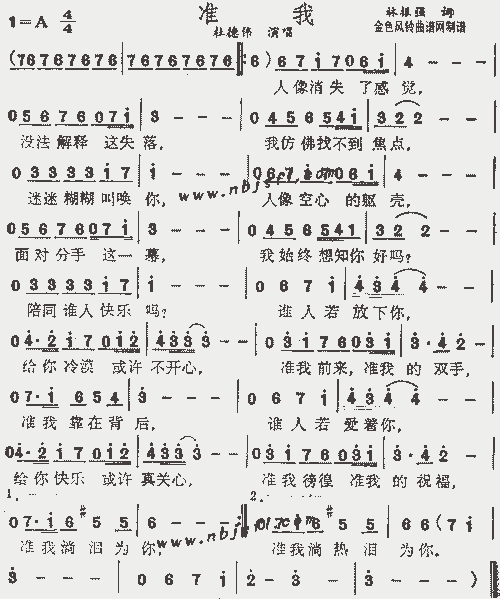 准 我
1=A 4/4
杜德伟 演唱
林振强 词
金色风铃曲谱网制谱
(76767676 | 76767676 |: 6) 6 7 i 7 0 6 i | 4 - - - |
人像消失 了感 觉,
0 5 6 7 6 0 7 i | 3 - - - | 0 4 5 6 5 4 i | 3 2 2 - - |
没法解释 这失落, 我仿佛找不到 焦点,
0 3 3 3 3 i 7 | i - - - | 0 6 7 i 0 6 i | 4 - - - |
迷迷糊糊叫唤 你, 人像空心 的躯 壳,
www.nbjsf.com
0 5 6 7 6 0 7 i | 3 - - - | 0 4 5 6 5 4 i | 3 2 2 - - |
面对分手 这一 幕, 我始终想知你 好吗?
0 3 3 3 3 i 7 | i - - - | 0 6 7 i | 4 3 4 4 - - |
陪同谁人快乐 吗? 谁人若 放下你,
0 4· 2 i 7 0 i 2 | 4 3 3 3 - - | 0 3 i 7 6 0 3 i | 3· 4 2 - |
给你冷漠 或许 不开心, 准我前来,准我 的 双手,
0 7· i 6 5 4 | 3 - - - | 0 6 7 i | 4 3 4 4 - - |
准我 靠在背 后, 谁人若 爱着你,
0 4· 2 i 7 0 i 2 | 4 3 3 3 - - | 0 3 i 7 6 0 3 i | 3· 4 2 - |
给你快乐 或许 真关心, 准我彷徨 准我 的 祝福,
1. 2.
0 7· i 6 #5 5 | 6 - - - :| 0 7· i 6 #5 5 | 6 6 ( 7 i |
准我淌 泪为 你, 准我淌 热泪 为你.
www.nbjsf.com
3 - - - | 0 6 7 i | 2 - 3 - | 3 - - - ) ‖